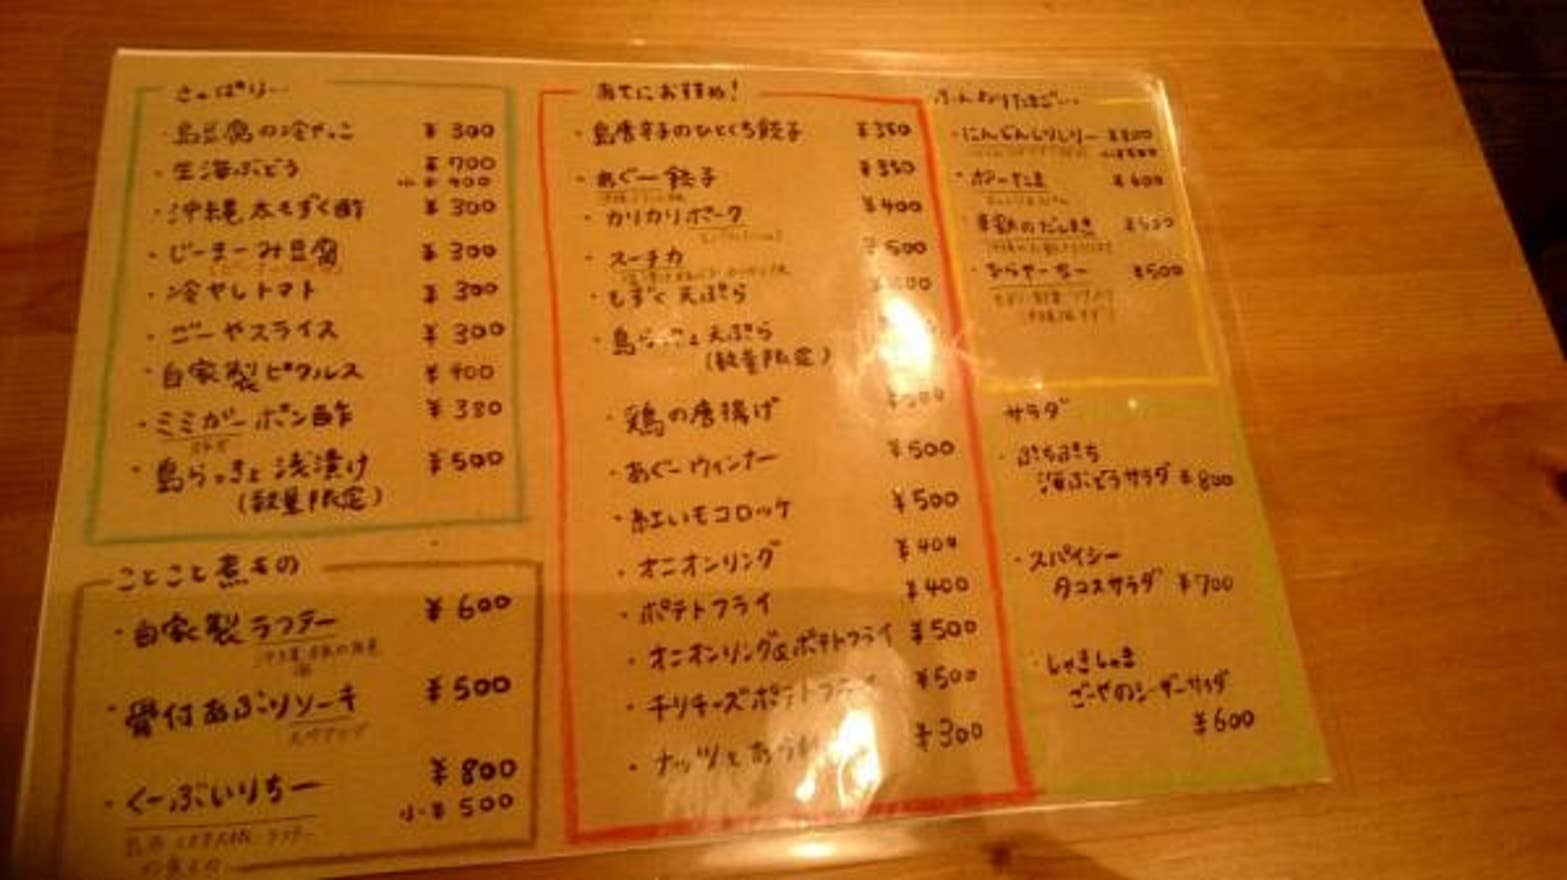 さっぱりー
・島豆腐の冷やっこ ¥300
・生海ぶどう ¥700
小¥400
・沖縄太もずく酢 ¥300
・じーまーみ豆腐 ¥300
・冷やしトマト ¥300
・ごーやスライス ¥300
・自家製ピクルス ¥400
・ミミガーポン酢 ¥380
・島らっきょ浅漬け ¥500
(数量限定)
ことこと煮もの
・自家製ラフテー ¥600
・骨付あぶりソーキ ¥500
スペアリブ
・くーぶいりちー ¥800
小¥500
の煮もの
あてにおすすめ!
・島唐辛子のひとくち餃子 ¥350
・あぐー餃子 ¥350
・カリカリポーク ¥400
・スーチカ ¥500
・もずく天ぷら
・島らっきょ天ぷら
(数量限定)
・鶏の唐揚げ
・あぐーウィンナー ¥500
・紅いもコロッケ ¥500
・オニオンリング ¥400
・ポテトフライ ¥400
・オニオンリング&ポテトフライ ¥500
・チリチーズポテトフライ ¥500
・ナッツと ¥300
ふんわりたまごー
・にんじんしりしりー ¥500
・ポーたま ¥400
・のだし巻き ¥500
・ひらやーちー ¥500
サラダ
・ぷちぷち
海ぶどうサラダ ¥800
・スパイシー
タコスサラダ ¥700
・しゃきしゃき
ごーやのシーザーサラダ
¥600